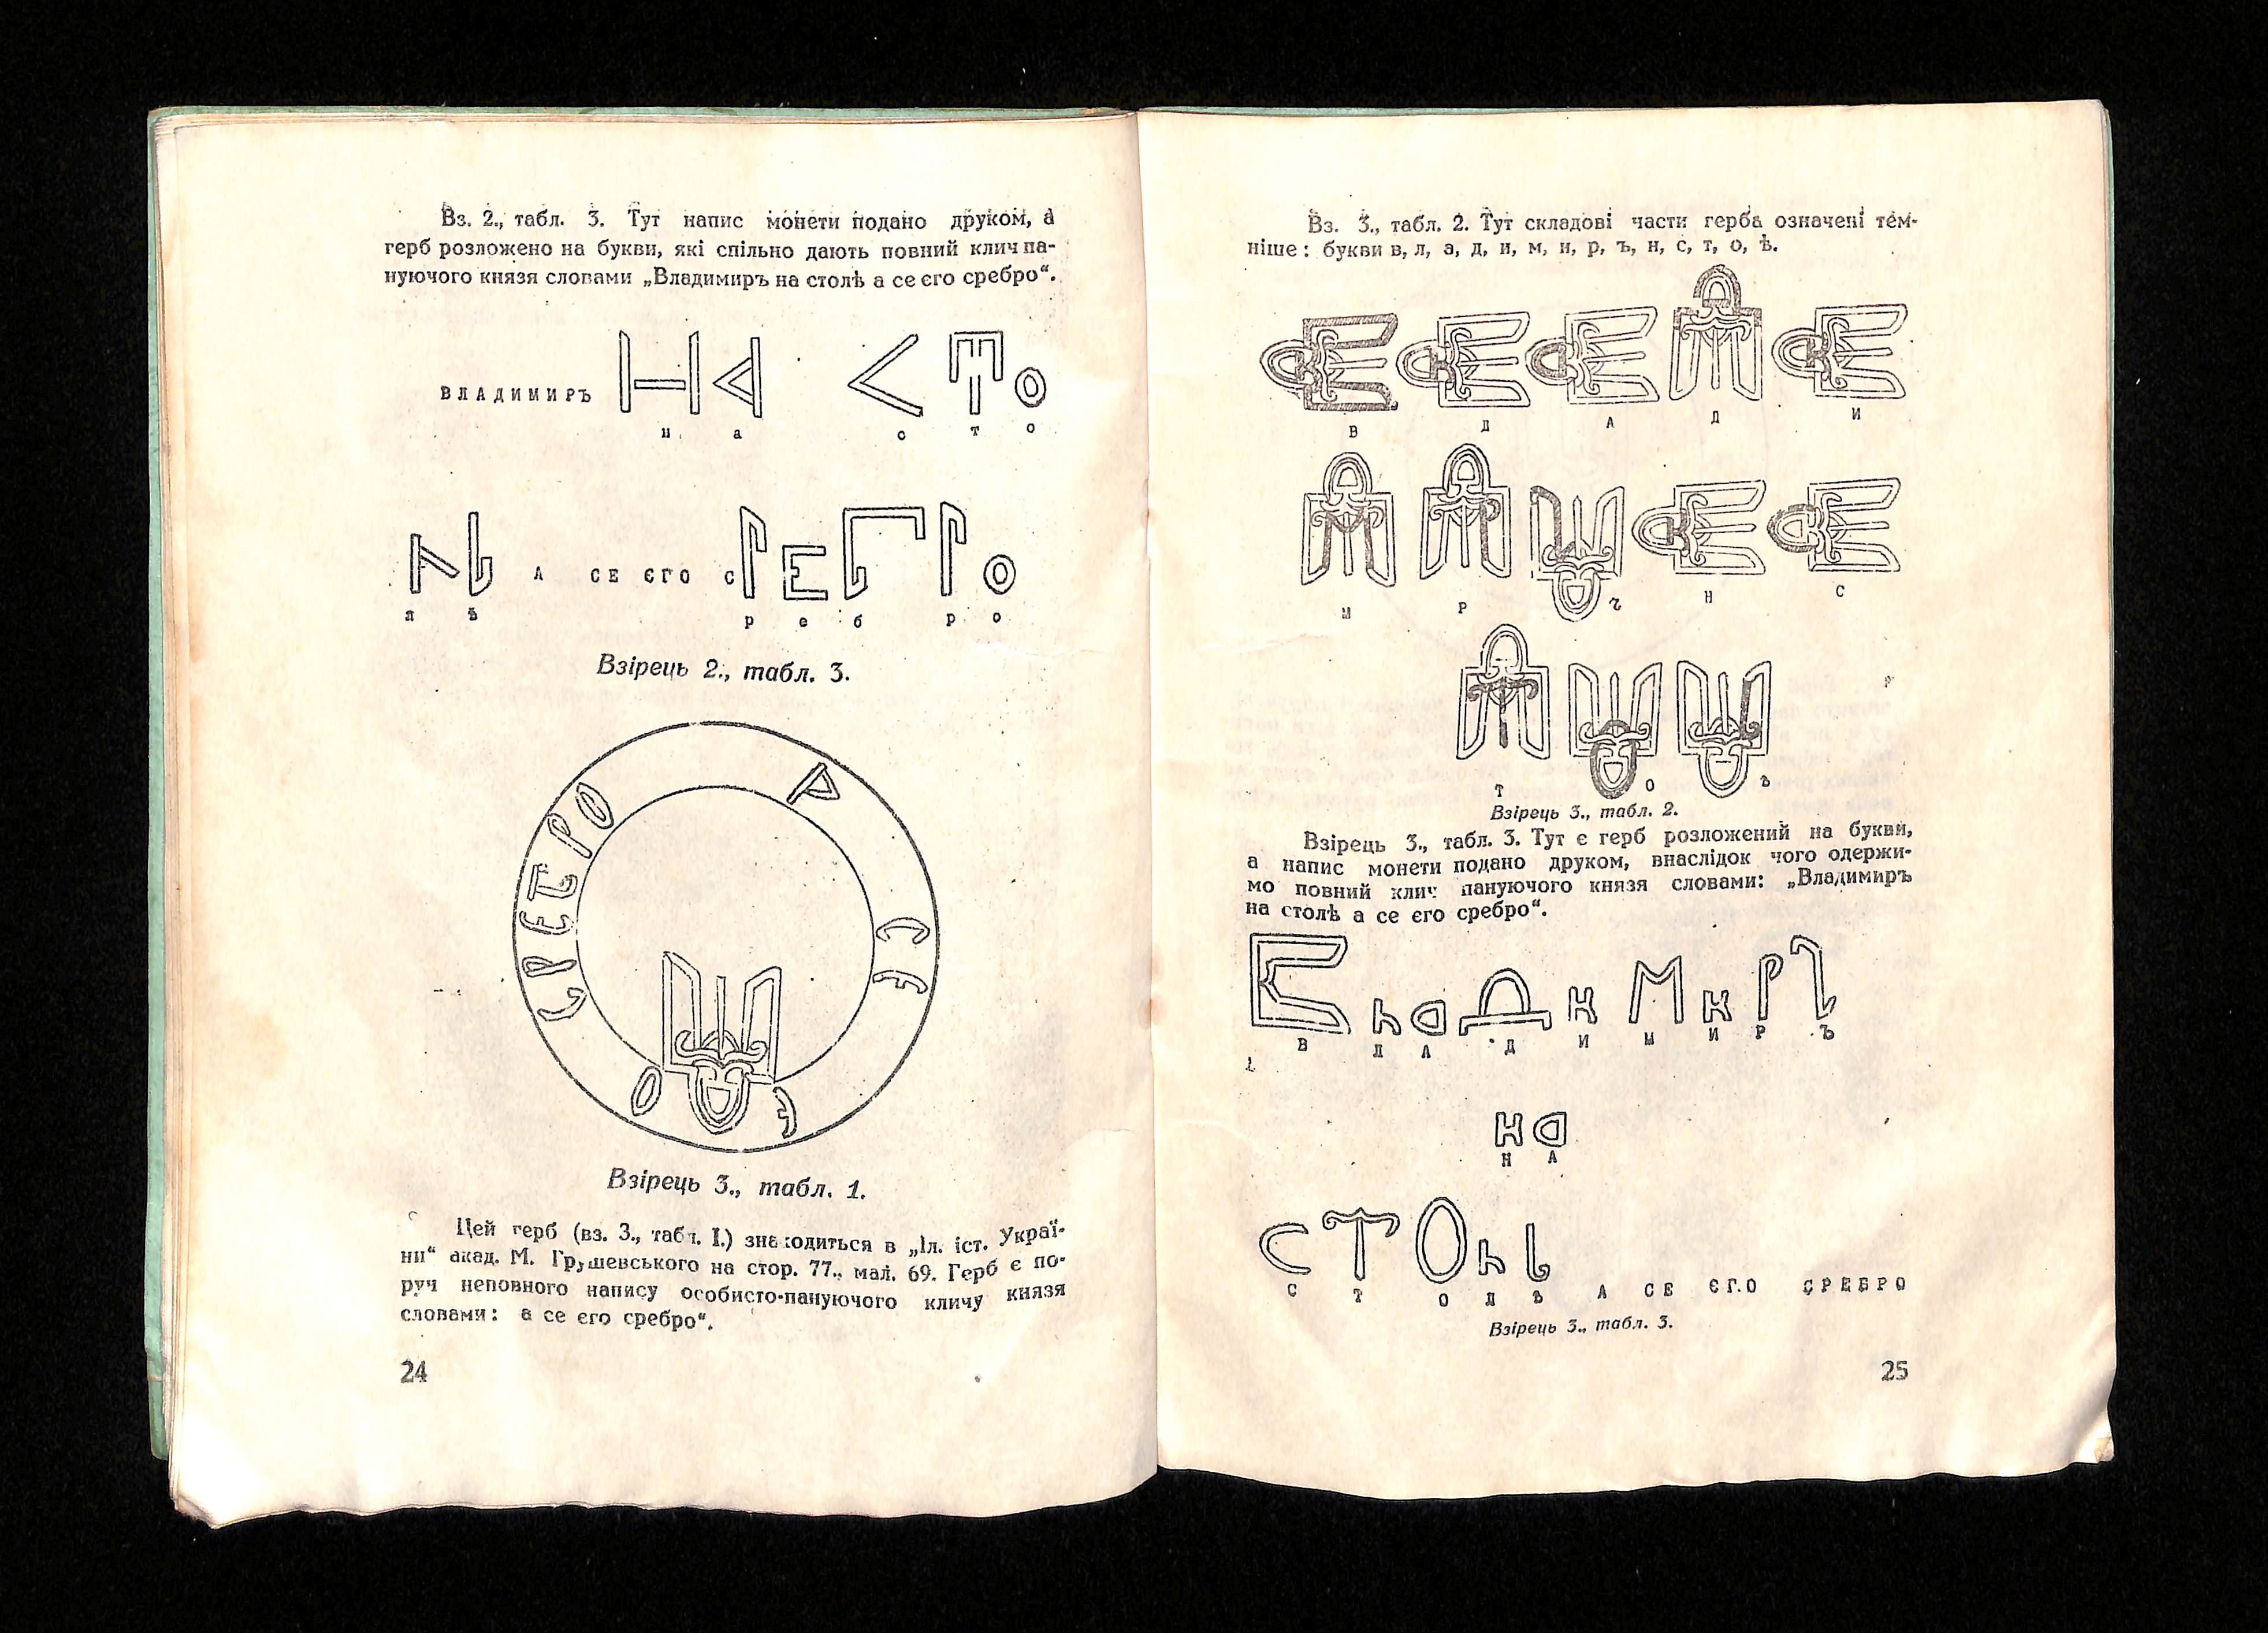 Вз. 2., табл. 3. Тут напис монети подано друком, а
герб розложено на букви, які спільно дають повний клич па-
нуючого князя словами „Владимиръ на столѣ а се єго сребро“.
ВЛАДИМИРЪ НА СТО
н а с т о
лѣ А СЕ ЄГО С РЕБРО
л ѣ р е б р о
Взірець 2., табл. 3.
А
СЕ
Є
О
СРЕБРО
Взірець 3., табл. 1.
Цей герб (вз. 3., табл. 1.) знаходиться в „Іл. іст. Украї-
ни“ акад. М. Грушевського на стор. 77., мал. 69. Герб є по-
руч неповного напису особисто-пануючого кличу князя
словами: а се єго сребро“.
24
Вз. 3., табл. 2. Тут складові части герба означені тем-
ніше: букви в, л, а, д, и, м, и, р, ъ, н, с, т, о, ѣ.
В Л А Д И
М Р Ъ Н С
Т О Ѣ
Взірець 3., табл. 2.
Взірець 3., табл. 3. Тут є герб розложений на букви,
а напис монети подано друком, внаслідок чого одержи-
мо повний клич пануючого князя словами: „Владимиръ
на столѣ а се єго сребро“.
ВЛАДИМИРЪ
В Л А Д И М И Р Ъ
НА
Н А
СТОЛѢ
С Т О Л Ѣ А СЕ ЄГО СРЕБРО
Взірець 3., табл. 3.
25